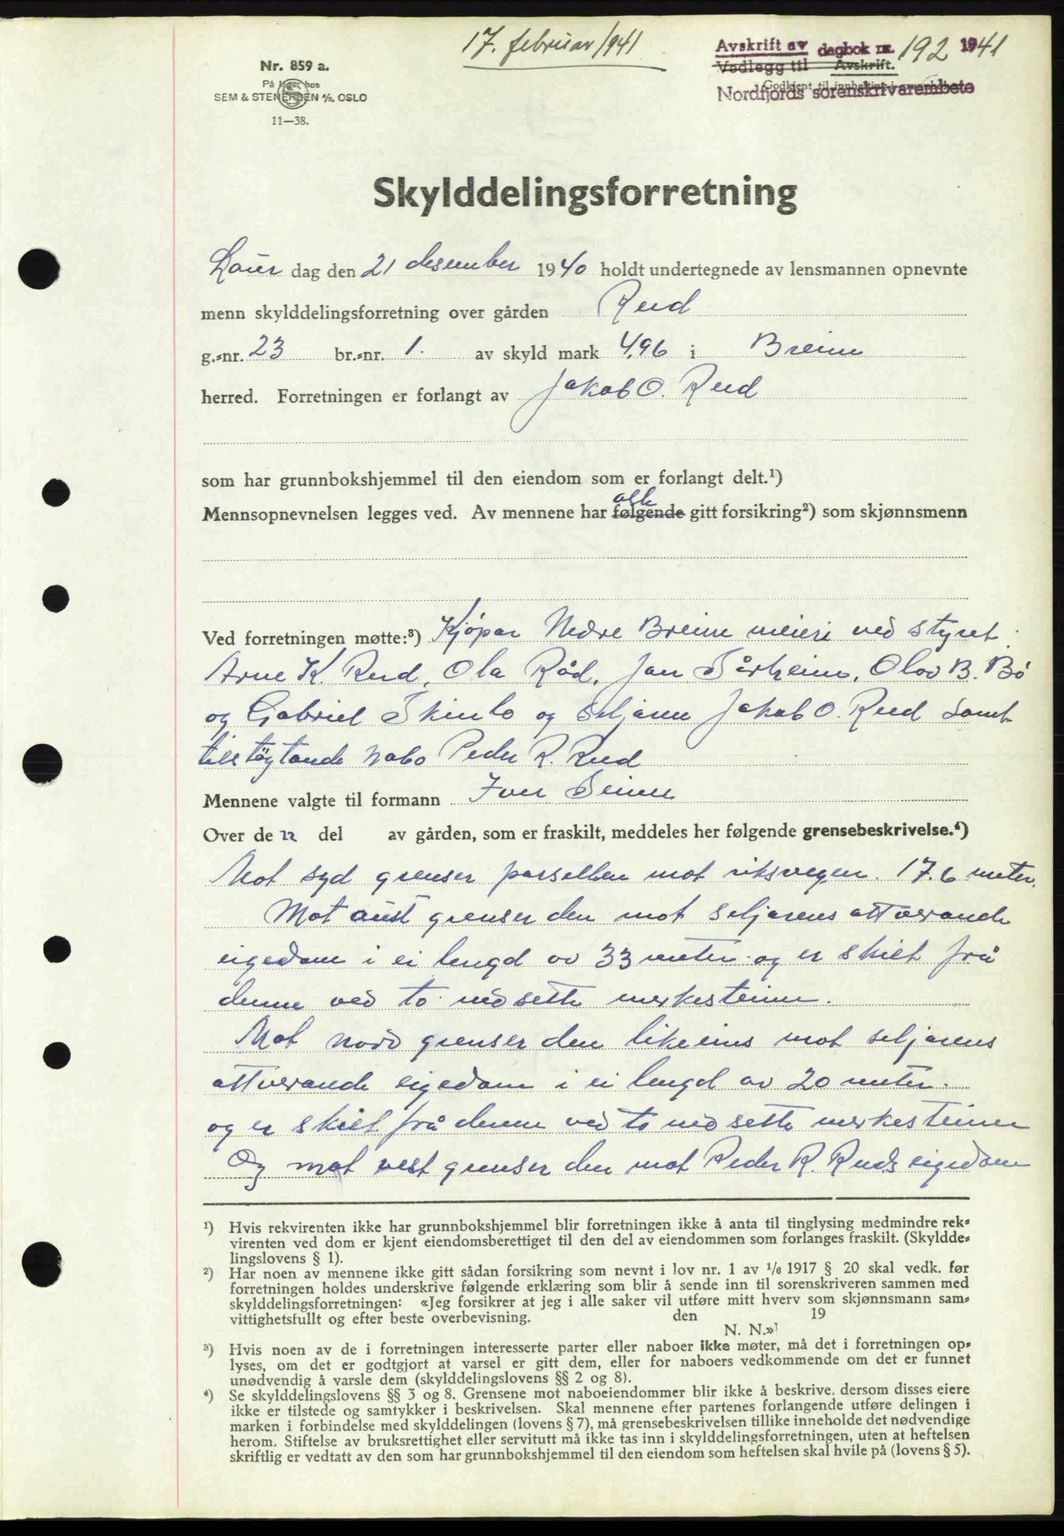 17. februar 1941
Avskrift av dagbok nr. 192 1941
Vedlegg til Avskrift.
Nordfjords sorenskrivarembete
Nr. 859 a.
På lager hos
SEM & STENERSEN A/S, OSLO
11—38.
Skylddelingsforretning
Laur dag den 21 desember 1940 holdt undertegnede av lensmannen opnevnte
menn skylddelingsforretning over gården Reed
g.-nr. 23 br.-nr. 1. av skyld mark 4,96 i Breim
herred. Forretningen er forlangt av Jakob O. Reed
som har grunnbokshjemmel til den eiendom som er forlangt delt.¹)
alle
Mennsopnevnelsen legges ved. Av mennene har følgende gitt forsikring²) som skjønnsmenn
Ved forretningen møtte:³) Kjøpar Nedre Breim meieri ved styret
Arne K. Reed, Ola Råd, Jan Sårheim, Olov B. Bö
og Gabriel Skinlo og seljaren Jakob O. Reed samt
tilstøytande nabo Peder R. Reed
Mennene valgte til formann Iver Seime
Over de n del av gården, som er fraskilt, meddeles her følgende grensebeskrivelse.⁴)
Mot syd grenser parsellen mot riksvegen. 17.6 meter.
Mot aust grenser den mot seljarens attverande
eigedom i ei lengd av 33 meter og er skilt frå
denne ved to nedsette merkesteinar.
Mot nord grenser den likeeins mot seljarens
attverande eigedom i ei lengd av 20 meter.
og er skilt frå denne ved to nedsette merkesteiner
Og mot vest grenser den mot Peder R. Reeds eigedom
¹) Hvis rekvirenten ikke har grunnbokshjemmel blir forretningen ikke å anta til tinglysing medmindre rek-
virenten ved dom er kjent eiendomsberettiget til den del av eiendommen som forlanges fraskilt. (Skyldde-
lingslovens § 1).
²) Har noen av mennene ikke gitt sådan forsikring som nevnt i lov nr. 1 av 1/6 1917 § 20 skal vedk. før
forretningen holdes underskrive følgende erklæring som blir å sende inn til sorenskriveren sammen med
skylddelingsforretningen: «Jeg forsikrer at jeg i alle saker vil utføre mitt hverv som skjønnsmann sam-
vittighetsfullt og efter beste overbevisning. den 19
N. N.»
³) Hvis noen av de i forretningen interesserte parter eller naboer ikke møter, må det i forretningen op-
lyses, om det er godtgjort at varsel er gitt dem, eller for naboers vedkommende om det er funnet
unødvendig å varsle dem (skylddelingslovens §§ 2 og 8).
⁴) Se skylddelingslovens §§ 3 og 8. Grensene mot naboeiendommer blir ikke å beskrive, dersom disses eiere
ikke er tilstede og samtykker i beskrivelsen. Skal mennene efter partenes forlangende utføre delingen i
marken i forbindelse med skylddelingen (lovens § 7), må grensebeskrivelsen tillike inneholde det nødvendige
herom. Stiftelse av bruksrettighet eller servitutt må ikke tas inn i skylddelingsforretningen, uten at heftelsen
skriftlig er vedtatt av den som har grunnbokshjemmel til den eiendom som heftelsen skal hvile på (lovens § 5).